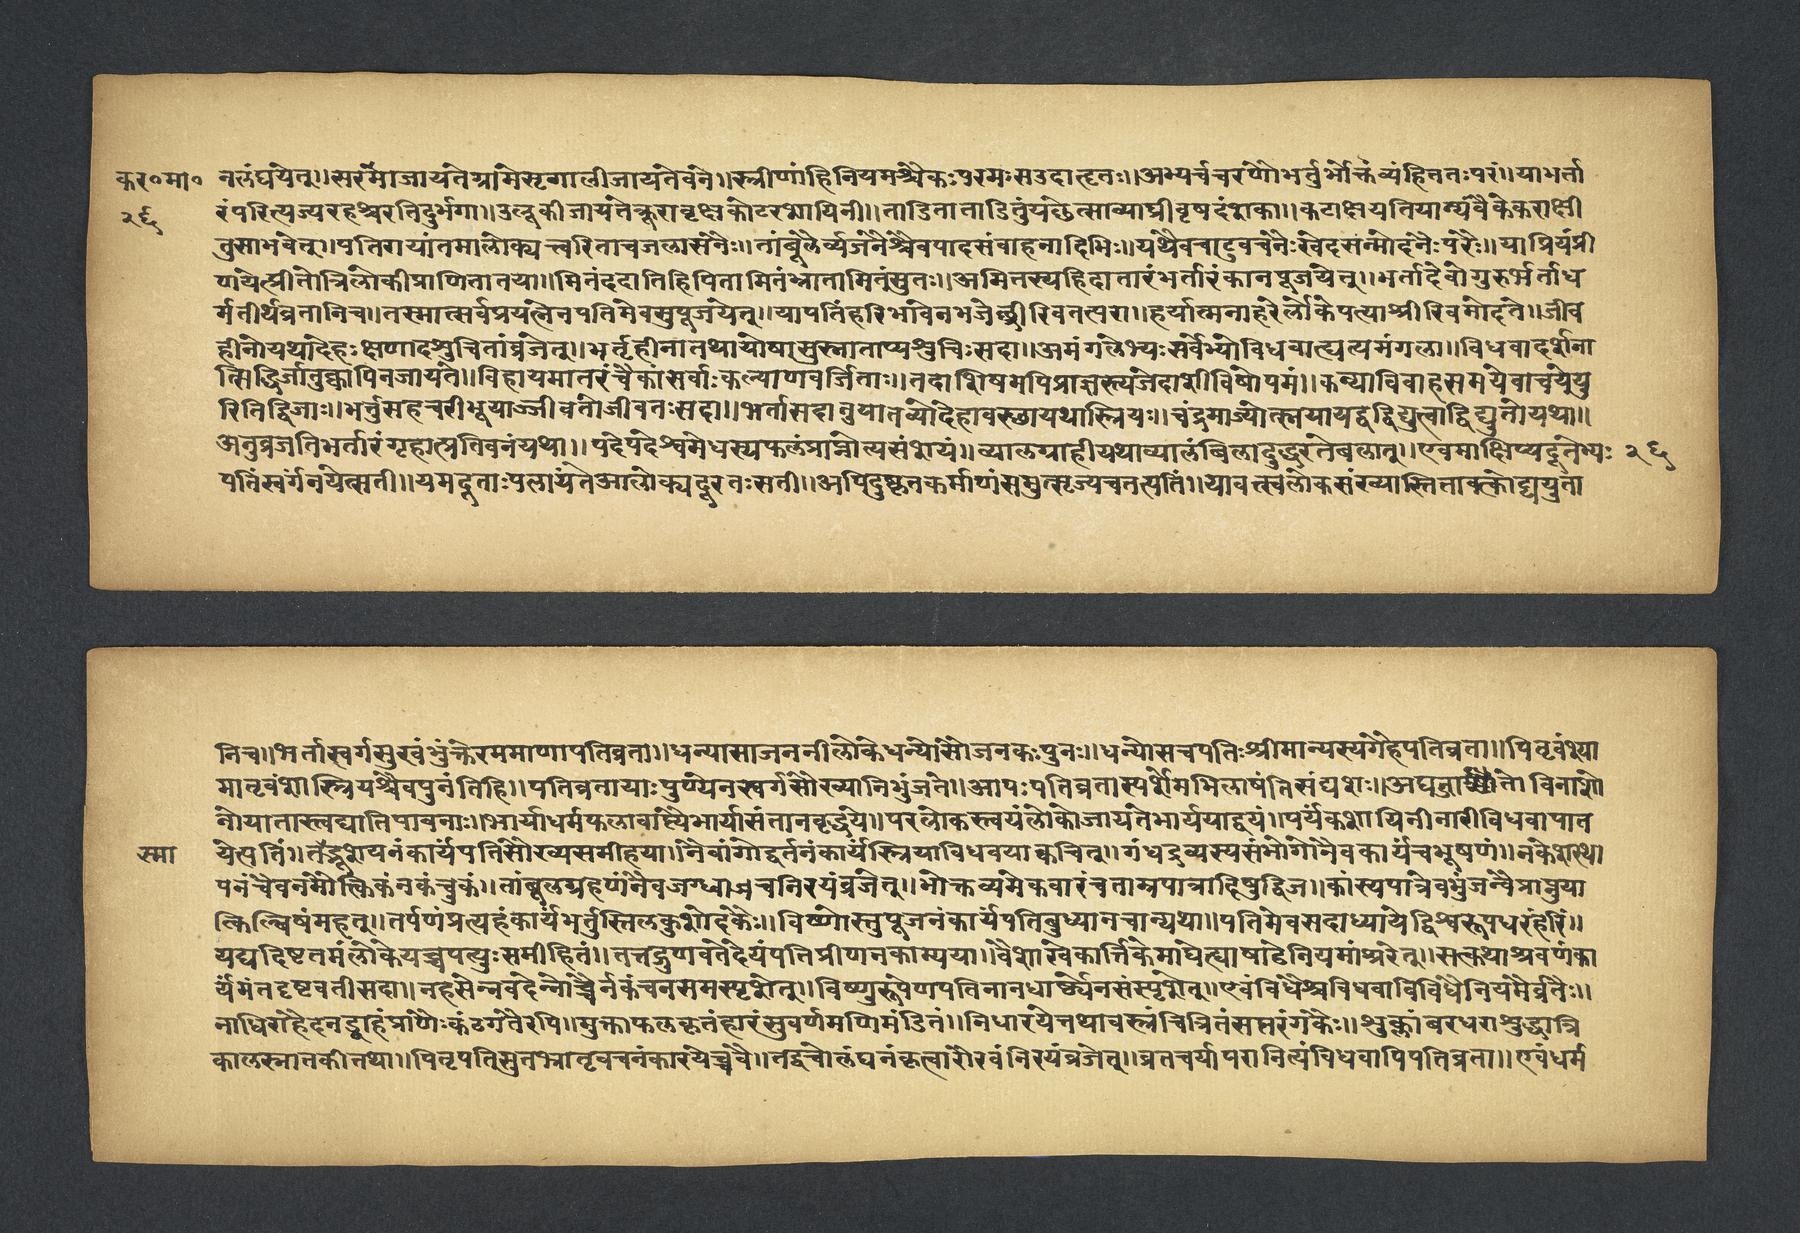 कर॰मा॰ नलंघयेत्॥सरमाजायतेग्रामेसृगालीजायतेवने॥स्त्रीणांहिनियमश्चैकःपरमःसउदाहृतः॥अभ्यर्चचरणौभर्तुर्भोक्तव्यंहिततःपरं॥याभर्ता
२६ रंपरित्यज्यरहश्चरतिदुर्भगा॥उलूकीजायतेक्रूरावृक्षकोटरशायिनी॥ताडिताताडितुंयछेत्साव्याघ्रीवृषदंशका॥कटाक्षयतियाम्यंवैकेकराक्षी
तुसाभवेत्॥पतिरायांतमालोक्यत्वरिताचजलासनैः॥तांबूलैर्व्यजनैश्चैवपादसंवाहनादिभिः॥यथैवचाटुवचनैःखेदसंन्मोदनैःपरैः॥याप्रियंप्री
णयेत्प्रीतोत्रिलोकीप्राणितातया॥मितंददातिहिपितामितंभ्रातामितंसुतः॥अमितस्यहिदातारंभर्तारंकानपूजयेत्॥भर्तादेवोगुरुर्भर्ताध
र्मतीर्थव्रतानिच॥तस्मात्सर्वप्रयत्नेनपतिमेवसुपूजयेत्॥यापतिंहरिभावेनभजेच्छ्रीरिवतत्परा॥हर्यात्मनाहरेर्लोकेपत्याश्रीरिवमोदते॥जीव
हीनोयथादेहःक्षणादशुचितांव्रजेत्॥भर्तृहीनातथायोषासुस्नाताप्यशुचिःसदा॥अमंगलेभ्यःसर्वेभ्योविधवात्यत्यमंगला॥विधवादर्शना
त्सिद्धिर्जातुक्वापिनजायते॥विहायमातरंचैकांसर्वाःकल्याणवर्जिताः॥तदाशिषमपिप्राज्ञस्त्यजेदाशीविषोपमं॥कन्याविवाहसमयेवाचयेयु
रितिद्विजाः॥भर्तुसहचरीभूयाज्जीवतोजीवतःसदा॥भर्तासहानुयातव्योदेहावछायथास्त्रियः॥चंद्रमाज्योत्स्नयायद्वद्विद्युत्वाद्विद्युतोयथा॥
अनुव्रजतिभर्तारंगृहात्प्रतिवनंयथा॥पदेपदेश्वमेधस्यफलंप्राप्नोत्यसंशयं॥व्यालग्राहीयथाव्यालंबिलादुद्धरतेबलात्॥एवमाक्षिप्यदूतेभ्यः २६
पतिंस्वर्गंनयेत्सती॥यमदूताःपलायंतेआलोक्यदूरतःसती॥अपिदुष्कृतकर्माणंसमुत्सृज्यचतत्पतिं॥यावत्स्वलोकसंख्यास्तितावत्कोट्ययुता
निच॥भर्तास्वर्गसुखंभुंक्तेरममाणापतिव्रता॥धन्यासाजननीलोकेधन्योसौजनकःपुनः॥धन्योसचपतिःश्रीमान्यस्यगेहेपतिव्रता॥पितृवंश्या
मातृवंशास्त्रियश्चैवपुनंतिहि॥पतिव्रतायाःपुण्येनस्वर्गसौख्यानिभुंजते॥आपःपतिव्रतास्पर्शमभिलाषंतिसंद्यशः॥अघनुा तो विनाशो
नोयातास्त्वद्यातिपावनाः॥भार्याधर्मफलावाप्त्यैभार्यासंतानवृद्धये॥परलोकस्त्वयंलोकोजायतेभार्ययाद्वयं॥पर्यंकशायिनीनारीविधवापात
स्मा येत्पतिं॥तद्भूशयनंकार्यंपतिसौख्यसमीहया॥नैवांगोद्वर्तनंकार्यंस्त्रियाविधवयाक्वचित्॥गंधद्रव्यस्यसंभोगोनैवकार्यंचभूषणं॥नकेशस्था
पनंचैवनमौक्तिकंनकंचुकं॥तांबूलग्रहणंनैवजग्ध्वान्नचनिरयंव्रजेत्॥भोक्तव्यमेकवारंचताम्रपात्राद्दिषुद्विज॥कांस्यपात्रेचभुंजन्वैप्राप्नुया
त्किल्बिषंमहत्॥तर्पणंप्रत्यहंकार्यंभर्तुस्तिलकुशोदकैः॥विष्णोस्तुपूजनंकार्यंपतिबुध्यानचान्यथा॥पतिमेवसदाध्यायेद्विश्वरूपधरंहरिं॥
यद्यदिष्टतमंलोकेयच्चपत्युःसमीहितं॥तत्तद्गुणवतेदेयंपतिप्रीणनकाम्यया॥वैशाखेकार्त्तिकेमाघेत्वाषाढेनियमांश्चरेत्॥सत्कथाश्रवणंका
र्यंभंतदृष्टवतीसदा॥नहसेन्नवदेन्नोच्चैर्नकंचनसमस्पृशेत्॥विष्णुरूपेणपतिनानधार्ष्ट्येनसंस्पृशेत्॥एवंविधैश्चविधवाविविधैनियमैर्व्रतैः॥
नाधिरोहेदनड्वाहंप्राणैःकंठगतैरपि॥मुक्ताफलकृतंहारंसुवर्णमणिमंडितं॥निधारयेनथावस्त्रंचित्रितंसप्तरंगकैः॥शुक्लांबरधराशुद्धात्रि
कालस्नातकीतथा॥पितृपतिसुतभ्रातृवचनंकारयेच्चवै॥तद्वचोल्लंघनंकृत्वारौरवंनिरयंव्रजेत्॥व्रतचर्यापरानित्यंविधवापिपतिव्रता॥एवंधर्म